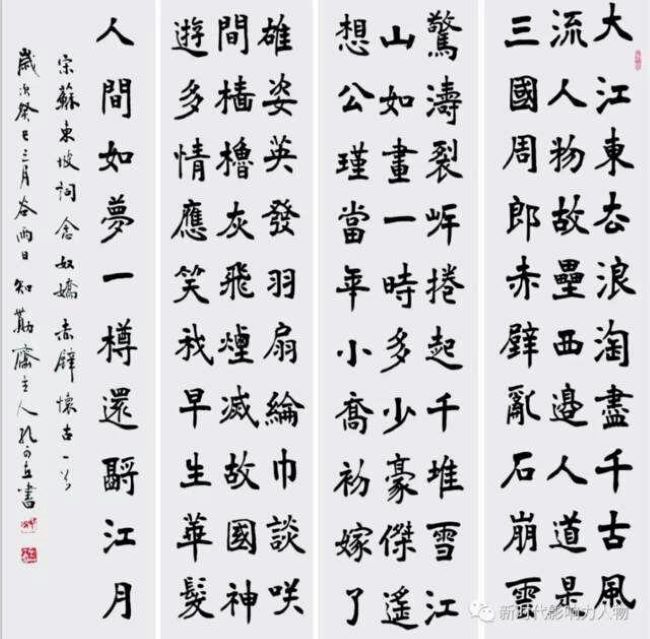 大江東去浪淘盡千古風
流人物故壘西邊人道是
三國周郎赤壁亂石崩雲
驚濤裂岸捲起千堆雪江
山如畫一時多少豪傑遙
想公瑾當年小喬初嫁了
雄姿英發羽扇綸巾談咲
間檣櫓灰飛煙滅故國神
遊多情應笑我早生華髮
人間如夢一樽還酹江月
宋蘇東坡詞念奴嬌赤壁懷古一首
歲次癸巳三月谷雨日知勤齋主人孔可立書
新时代影响力人物